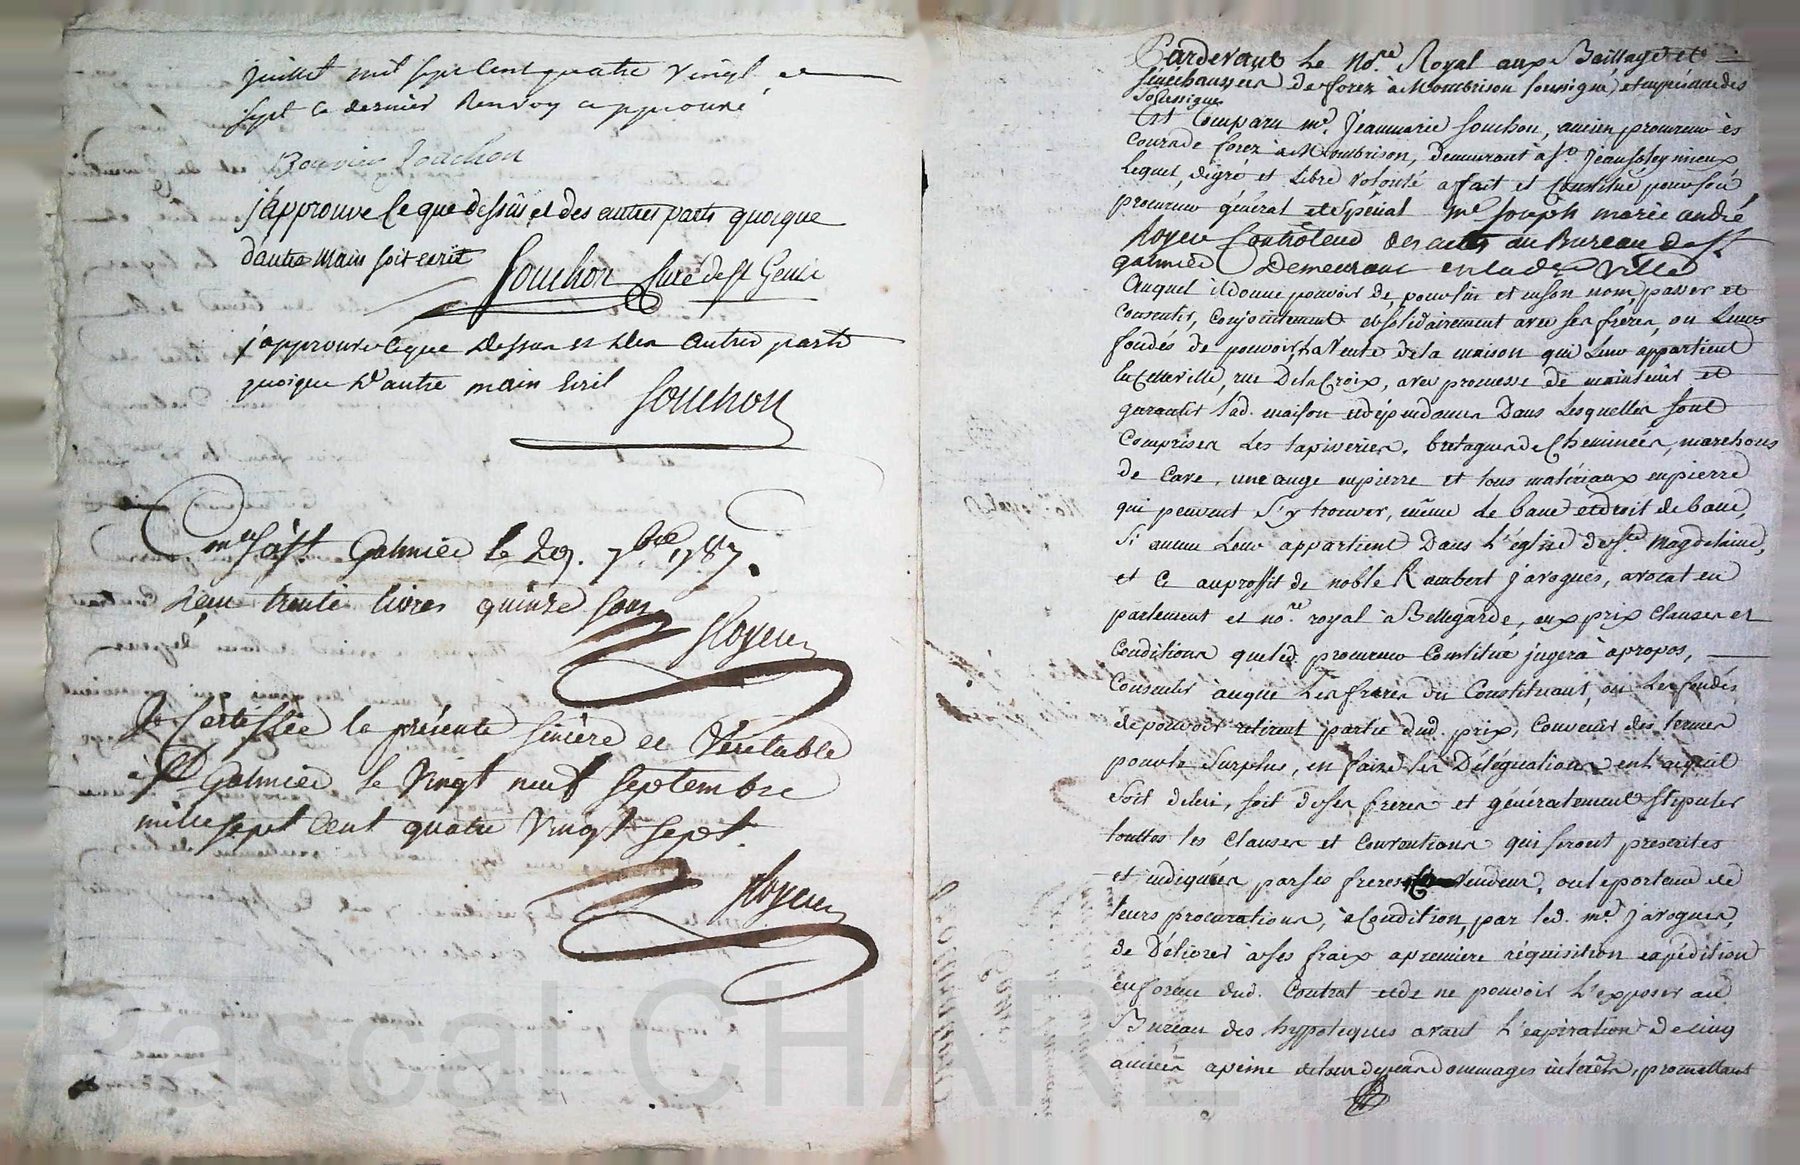 juillet mil sept cent quatre vingt et
sept ce dernier Renvoy approuvé
Bouvier Souchon
j'approuve ce que dessus et des autres parts quoique
d'autre main soit ecrit
Souchon Curé de st Genis
j'approuve ce que dessus et des autres parts
quoique d'autre main écrit Souchon
à st Galmier le 29. 7bre 1787.
Reçu trente livres quinze sous
Royer
Je Certiffie la présente sincère et Véritable
à St Galmier le Vingt neuf Septembre
mille sept Cent quatre Vingt Sept.
Royer
Pardevant Le No.re Royal aux Baillage et
sénéchaussée de forez à Montbrison soussigné, et en présence des
Est Comparu me. Jeanmarie Souchon, ancien procureur ès
Cours de forez à Montbrison, demeurant à st. Jean soleymieux
Lequel, de gré et Libre volonté a fait et Constitué pour son
procureur général et spécial me Joseph marie andré
Royer Controleur des actes au Bureau de st
galmier Demeurant en lad. Ville
Auquel il donne pouvoir de, pour lui et en son nom, passer et
Consentir, conjointement et solidairement avec ses frères, ou Leurs
fondés de pouvoir, La Vente de la maison qui Leur appartient
en Cette ville, rue De la Croix, avec promesse de maintenir et
garantir lad. maison et dépendances Dans Lesquelles sont
Comprises Les tapisseries, bretagnes de Cheminées, marchons
de Cave, une auge en pierre et tous matériaux en pierre
qui peuvent s'y trouver, même Le banc et droit de banc,
Si aucun Leur appartient Dans L'église de ste. Magdelaine,
et Ce au proffit de noble Rambert javogues, avocat en
parlement et no.re royal à Bellegarde, aux prix Clauses et
Conditions que led. procureur Constitué jugera à propos,
Consentir à ce que Les frères du Constituant, ou Les fondés
de pouvoir retirent partie dud. prix, Convenir des termes
pour le Surplus, en faire les Délégations en l'acquit
Soit de lui, soit de ses frères et généralement stipuler
touttes les Clauses et Conventions qui seront prescrites
et indiquées par ses freres Vendeur, ou le porteur de
leurs procurations, à Condition, par led. me javogues,
de Délivrer à ses fraix a première réquisition expédition
en forme dud. Contrat et de ne pouvoir L'exposer au
Bureau des hypoteques avant L'expiration de cinq
années a peine de tous dépens dommages intérêts, promettant
Pascal CHAREYRO